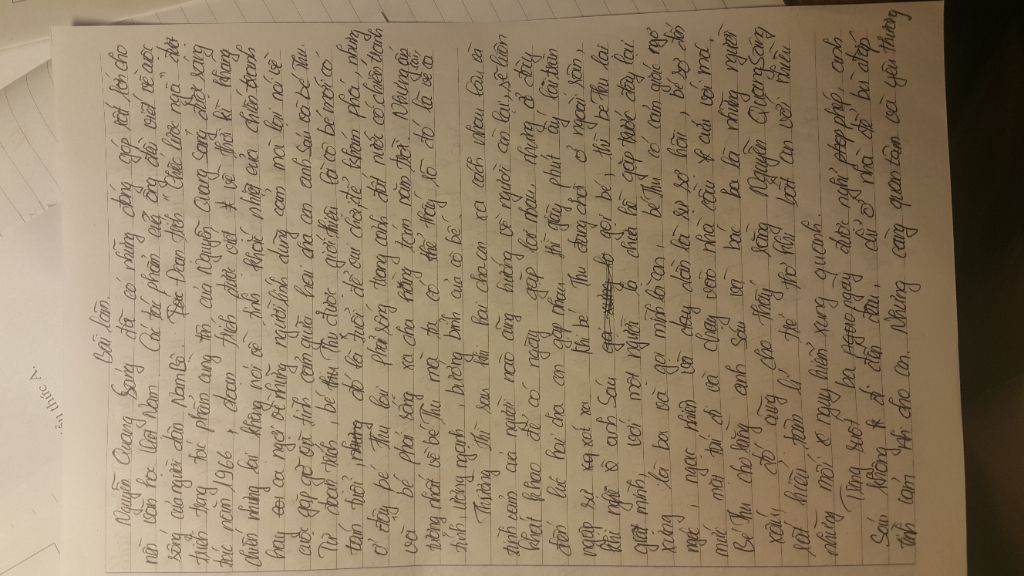 Bài làm
Nguyễn Quang Sáng đã có những đóng góp rất lớn cho
nền văn học Việt Nam. Các tác phẩm của ông đều viết về cuộc
sống của người dân Nam Bộ. Đoạn trích "Chiếc lược ngà" được
trích trong tác phẩm cùng tên của Nguyễn Quang Sáng được sáng
tác năm 1966, đoạn trích được viết về thời kì kháng
chiến nhưng lại không nói về tính khốc liệt của chiến tranh
hay ca ngợi về những người lính dũng cảm mà lại nói về
cuộc gặp gỡ với tình cảm giữa hai cha con anh Sáu và bé Thu.
Từ đoạn trích, bé Thu được giới thiệu là cô bé mới có
tám tuổi, độ là tuổi để vui chơi, để khám phá, nhưng
ở đây bé Thu lại phải sống trong cảnh đất nước có chiến tranh
và bé phải sống xa cha hằng tám năm trời. Nhưng ấn
tượng nhất về bé Thu mà ta có thể thấy, rõ đó là vẻ cá
tính, ương ngạnh, bướng bỉnh của cô bé.
Thường thì sau khi hai cha con xa cách nhau lâu và
tình cảm của người nào cũng hướng về người còn lại, sẽ luôn
khát khao để có ngày gặp lại nhau, nhưng ở đây
đến lúc hai cha con gặp nhau thì giây phút ấy lại trên
ngập sự xót xa. Khi bé Thu đang chơi ở ngoài sân,
khi nghe rõ anh Sáu gọi bé, thì bé Thu lại
giật mình, với một người lạ chưa hề gặp trước đây lại
xưng là ba và gọi mình là con, bé Thu có cảm giác ngơ
ngác, ngạc nhiên và dần dần là sự sợ hãi, bé sợ đến
mức mặt tái đi và chạy vào nhà cầu cứu với má.
Bé Thu cho rằng anh Sáu và bác ba là những người
xấu, cũng cho thấy rằng Nguyễn Quang Sáng
rất hiểu tâm lí trẻ thơ khi bất an với
những mối nguy hiểm xung quanh.
Trong suốt ba ngày được nghỉ phép, anh
Sáu không đi đến đâu, chỉ ở nhà để bù đắp
tình cảm cho con. Nhưng càng quan tâm và yêu thương